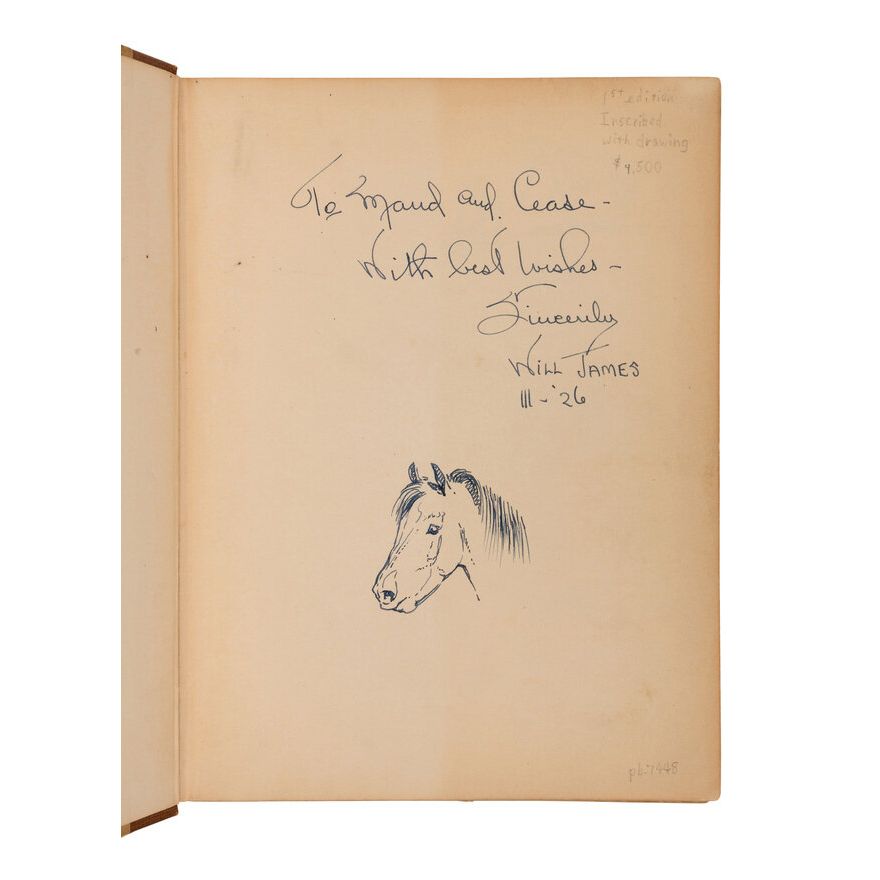 1st edition
Inscribed
with drawing
$4,500
To Maud and Cease -
With best Wishes -
Sincerily
WILL JAMES
III - '26
pb7448